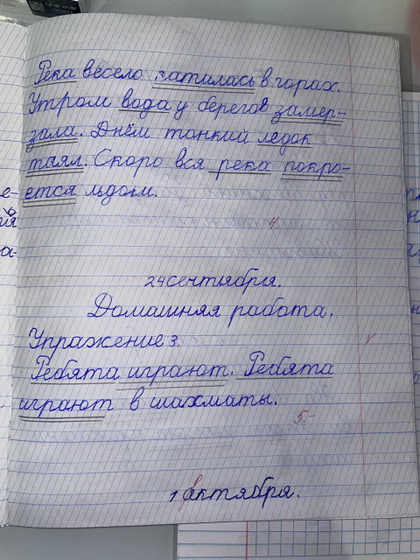 Река весело катилась в горах.
Утром вода у берегов замер-
зала. Днём тонкий ледок
таял. Скоро вся река покро-
ется льдом.
4
24 сентября.
Домашняя работа.
Упражнение 3.
Ребята играют. Ребята
играют в шахматы.
5-
1 октября.